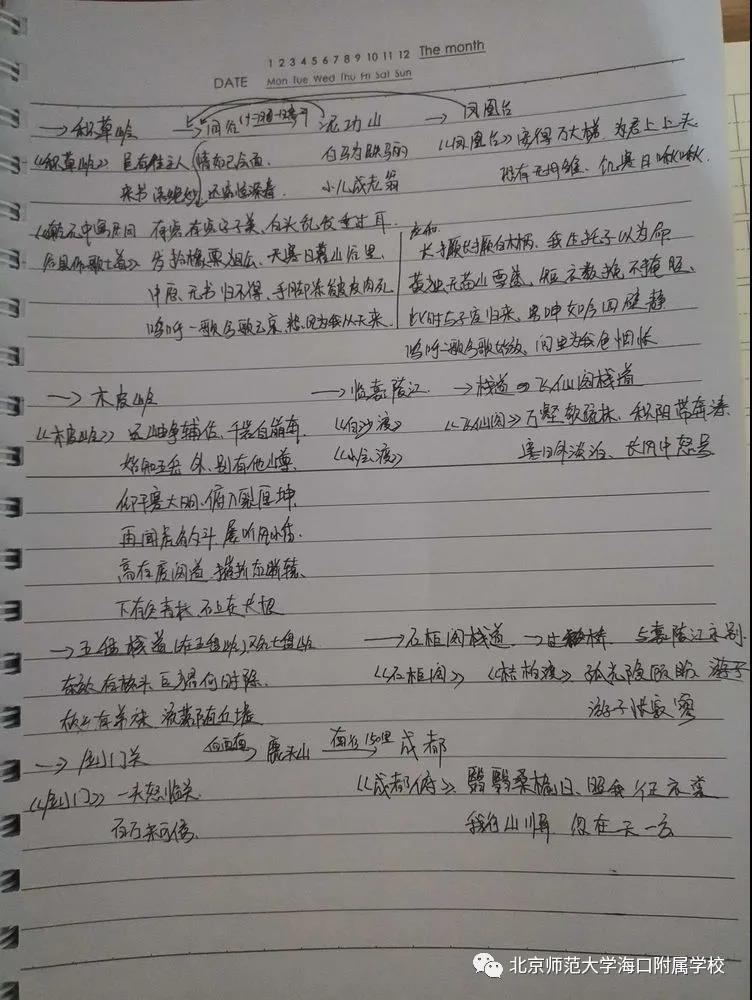 1 2 3 4 5 6 7 8 9 10 11 12 The month
DATE Mon Tue Wed Thu Fri Sat Sun
→积草岭 →同谷(十一月底-十二月初) 泥功山 → 凤凰台
《积草岭》邑有佳主人 情如已会面 白马为铁骊 《凤凰台》安得万丈梯,为君上上头
来书语绝妙 远客惊深眷. 小儿成老翁 恐有无母雏,饥寒日啾啾.
《乾元中寓居同 有客有客字子美,白头乱发垂过耳.
谷县作歌七首》岁拾橡栗随狙公,天寒日暮山谷里.
中原无书归不得,手脚冻皴皮肉死
呜呼一歌兮歌已哀,悲风为我从天来.
长镵长镵白木柄,我生托子以为命
黄独无苗山雪盛,短衣数挽不掩胫.
此时与子空归来,男呻女吟四壁静
呜呼二歌兮歌始放,闾里为我色惆怅
→木皮岭 →临嘉陵江 →栈道 飞仙阁栈道
《木皮岭》远岫争辅佐,千岩自崩奔. 《白沙渡》 《飞仙阁》万壑欹疏林,积阴带奔涛
始知五岳外,别有他山尊. 《水会渡》 寒日外淡泊,长风中怒号
仰干塞大明,俯入裂厚坤.
再闻虎豹斗,屡
高有废阁道,摧折如断辕.
下有冬青林,石上走长根
→五盘栈道(在五盘岭)又名七盘岭 →石柜阁栈道 → 与嘉陵江永别
东郊尚格斗 巨猾何时除. 《石柜阁》 《桔柏渡》孤光隐顾眄 游子
故乡有弟妹 流落随丘墟 游子怅寂寥
→剑门关 向西南→ 鹿头山 南行150里→ 成都
《剑门》一夫怒临关 《成都府》翳翳桑榆日,照我征衣裳
百万未可傍. 我行山川异 忽在天一方
北京师范大学海口附属学校